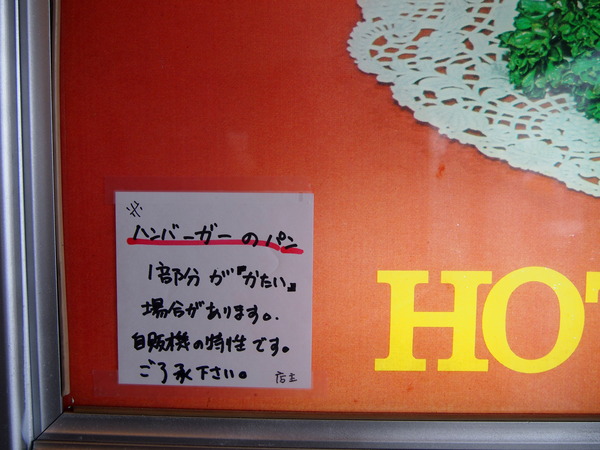 ※
ハンバーガーのパン
1部分が『かたい』
場合があります。
自販機の特性です。
ご了承下さい。 店主
HOT